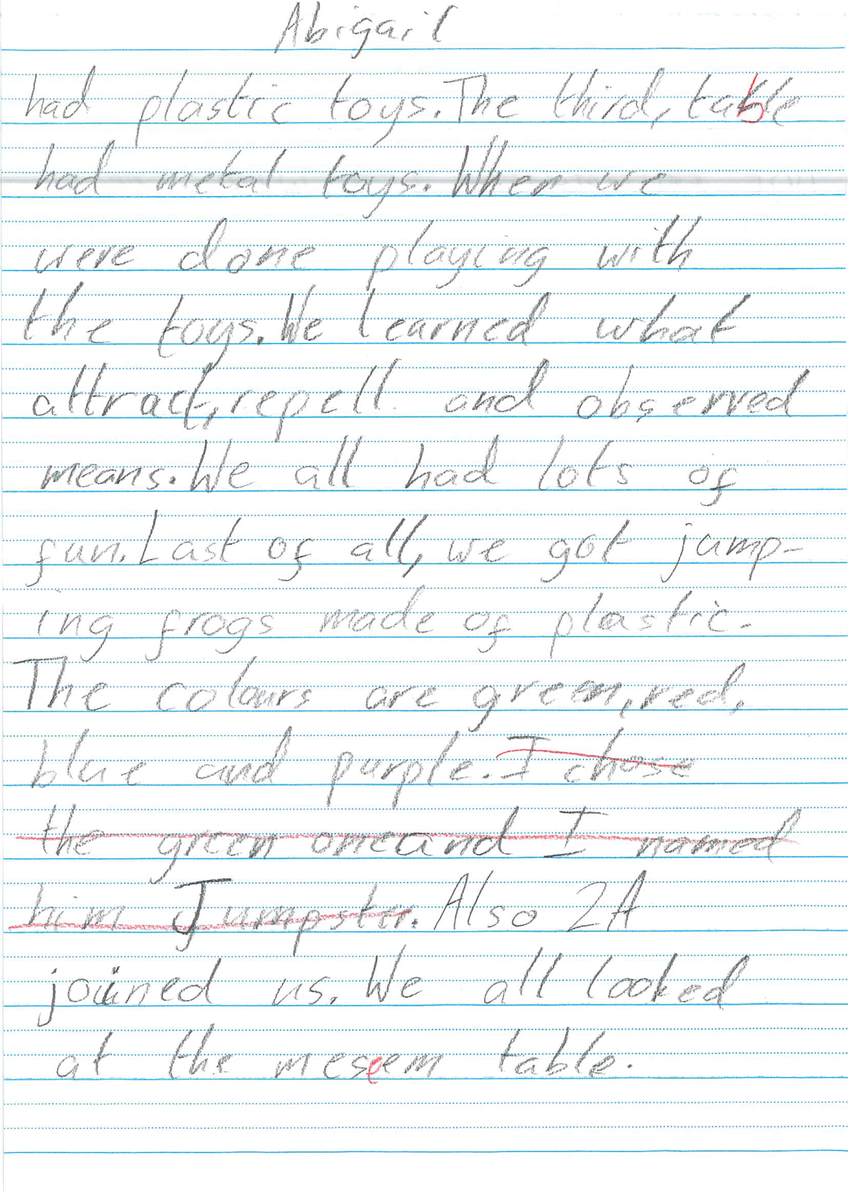 Abigail
had plastic toys. The third, table
had metal toys. When we
were done playing with
the toys. We learned what
attract, repell and observed
means. We all had lots of
fun. Last of all, we got jump-
ing frogs made of plastic.
The colours are green, red,
blue and purple. I chose
the green one and I named
him Jumpster. Also 2A
joined us. We all looked
at the meseem table.